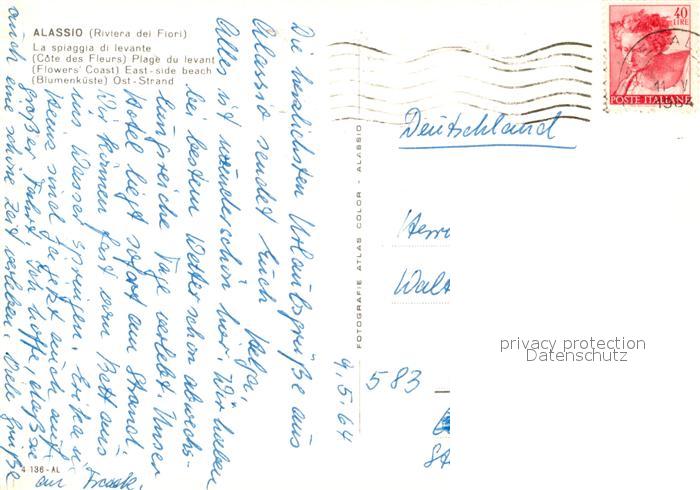 ALASSIO (Riviera dei Fiori)
La spiaggia di levante
(Côte des Fleurs) Plage du levant
(Flowers' Coast) East-side beach
(Blumenküste) Ost-Strand
40
LIRE
POSTE ITALIANE
Die herzlichsten Urlaubsgrüße aus
Alassio sendet Euch Helga.
Alles ist wunderschön hier. Wir haben
bei bestem Wetter schon abwechs-
lungsreiche Tage verlebt. Unser
Hotel liegt sofort am Strand.
Wir können fast vom Bett aus
ins Wasser springen. Erika u.
Heinz sind ja jetzt auch auf
großer Fahrt. Ich hoffe, daß sie
auch eine schöne Zeit verleben. Viele Grüße
an Frack.
9.5.64
FOTOGRAFIE ATLAS COLOR - ALASSIO
Deutschland
Herrn
Walt
583
4 136-AL
privacy protection
Datenschutz